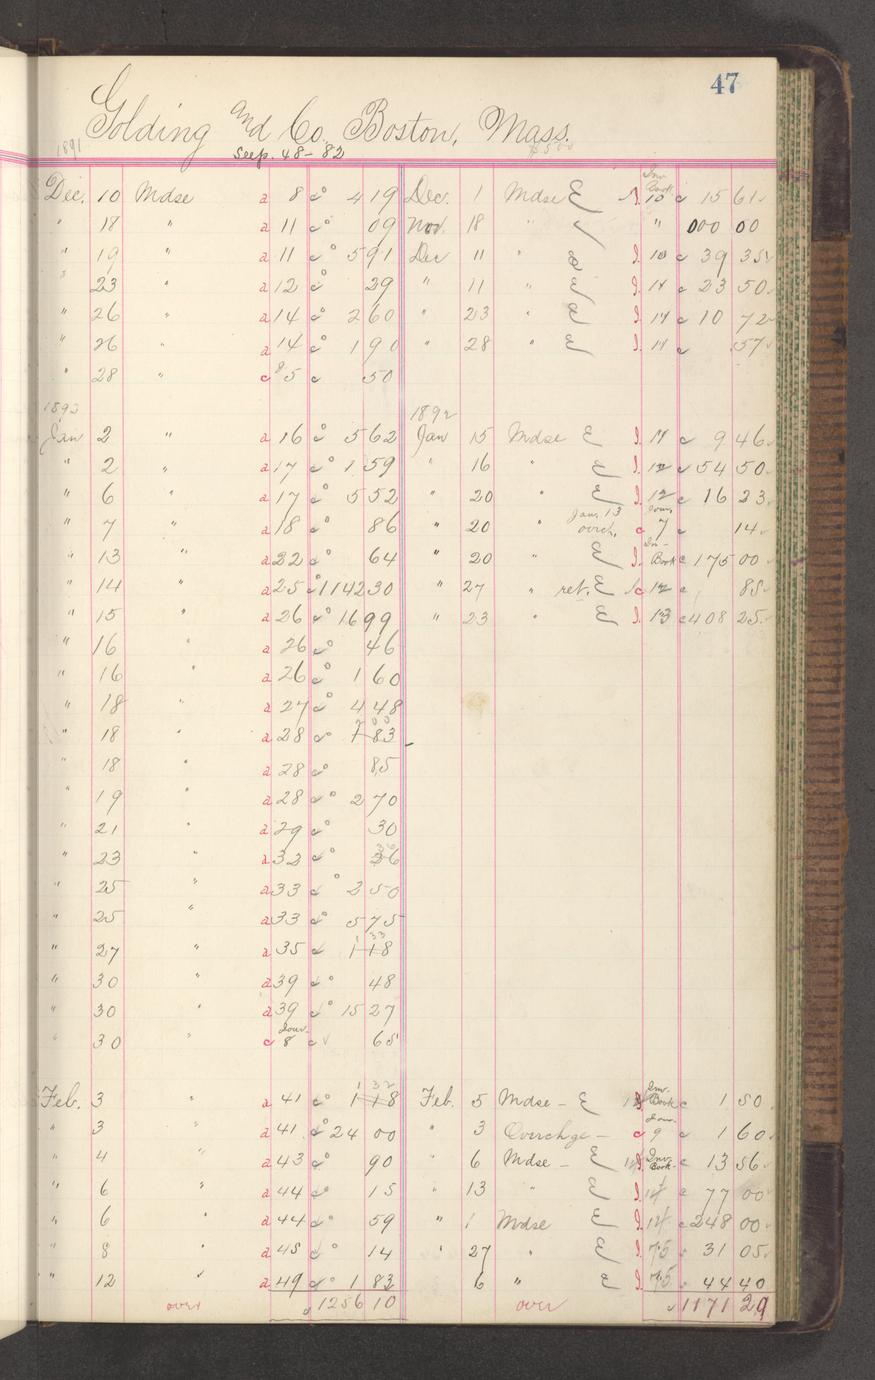 47
Golding and Co. Boston, Mass.
1891 Seep. 48-'82
Inv. Book
Dec. 10 Mdse a 8 c° 4 19 Dec. 1 Mdse 10 c 15 61
" 18 " a 11 c° 09 Nov. 18 " " 000 00
" 19 " a 11 c° 5 91 Dec 11 " I. 10 c 39 35
" 23 a 12 c° 29 " 11 " I. 11 c 23 50
" 26 " a 14 c° 2 60 " 23 " I. 11 c 10 72
" 26 " a 14 c° 1 90 " 28 " I. 11 c 57
" 28 " c 85 c 50
1892 1892
Jan 2 " a 16 c° 5 62 Jan 15 Mdse I. 11 c 9 46
" 2 " a 17 c° 1 59 " 16 " I. 12 c 54 50
" 6 " a 17 c° 5 52 " 20 " I. 12 c 16 23
" 7 " a 18 c° 86 " 20 " Jan. 13 overch. c Jour. 7 c 14
" 13 " a 22 c° 64 " 20 " I. Book c 175 00
" 14 " a 25 c° 1142 30 " 27 " ret. 12 c 85
" 15 " a 26 c° 16 99 " 23 " I. 13 c 408 25
" 16 " a 26 c° 46
" 16 " a 26 c° 1 60
" 18 " a 27 c° 4 48
" 18 " a 28 c° 1 83 2 00
" 18 " a 28 c° 85
" 19 " a 28 c° 2 70
" 21 " a 29 c° 30
" 23 " a 32 c° 36
" 25 " a 33 c° 2 50
" 25 " a 33 c° 5 75
" 27 " a 35 c 1 18 1 33
" 30 " a 39 c° 48
" 30 " a 39 c° 15 27
" 30 " c Jour. 8 c 65
Feb. 3 a 41 c° 1 18 1 32 Feb. 5 Mdse - Inv. Book c 1 50
" 3 " a 41 c° 24 00 " 3 Overchge - c Jour. 9 c 1 60
" 4 " a 43 c° 90 " 6 Mdse - Inv. Book c 13 56
" 6 " a 44 c° 15 " 13 " I. 14 c 77 00
" 6 " a 44 c° 59 " 1 Mdse I. 14 c 248 00
" 8 " a 45 c° 14 " 27 " I. 15 c 31 05
" 12 " a 49 c° 1 83 6 " I. 15 c 44 40
over 1256 10 over 1171 29